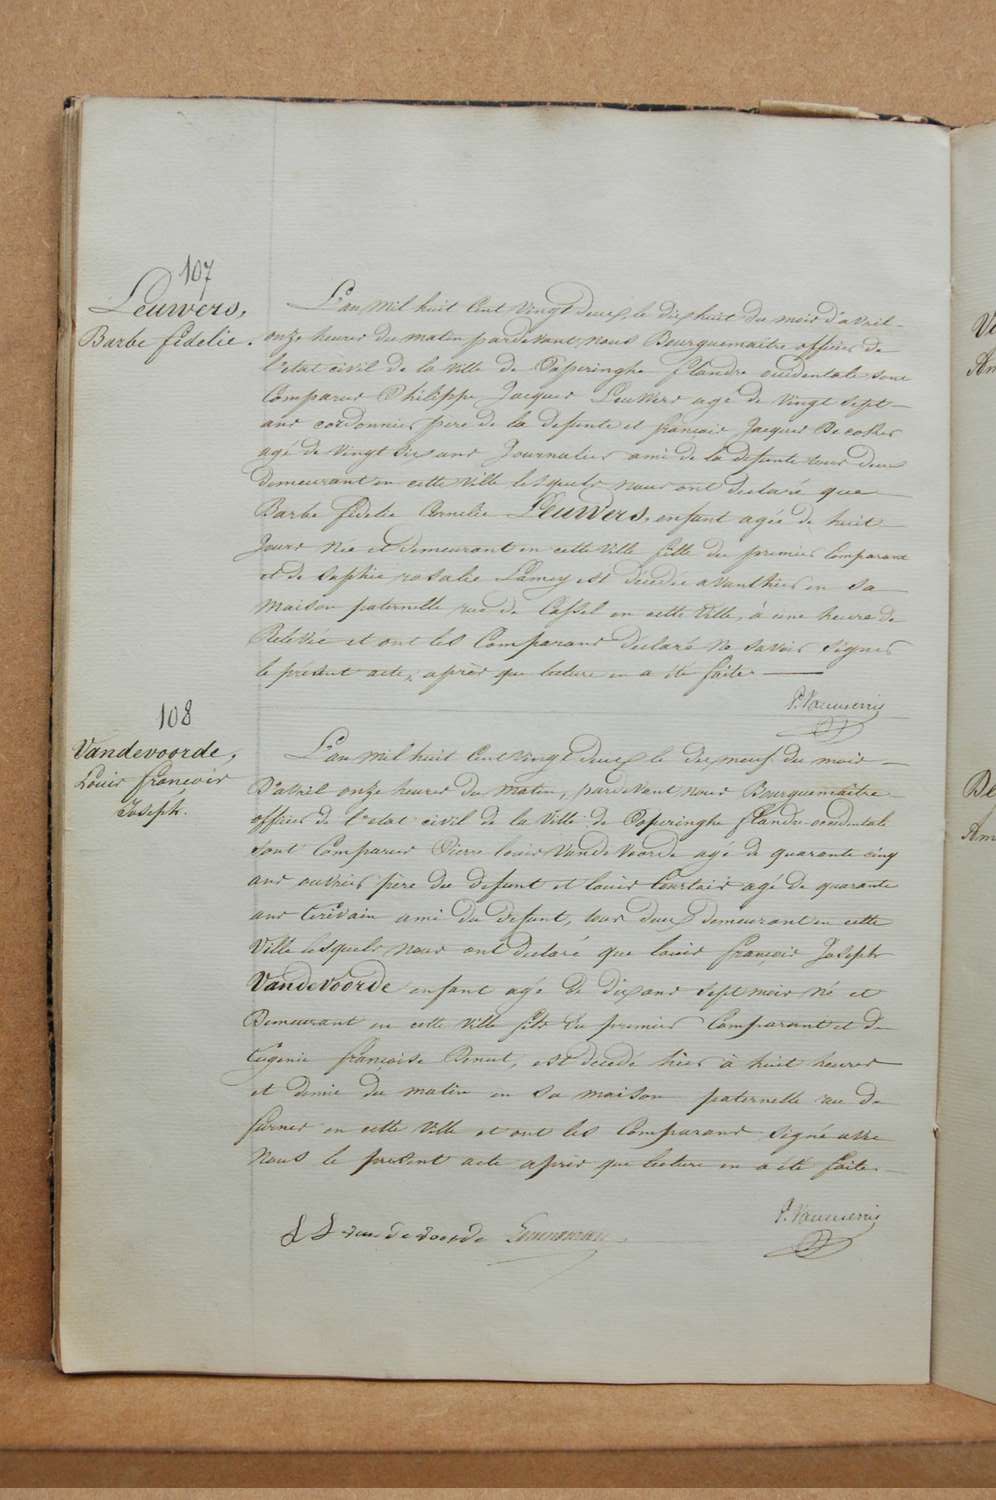 107
Leuwers,
Barbe fidelie.
L'an mil huit Cent vingt deux le dix huit du mois d'avril
onze heures du matin pardevant nous Bourguemaitre officier de
l'etat civil de la ville de Poperinghe flandre occidentale sont
Comparus Philippe Jacques Leuwers age de vingt sept
ans cordonnier pere de la defunte et françois Jacques Decoker
agé de vingt six ans Journalier ami de la defunte tous deux
demeurant en cette ville lesquels nous ont declaré que
Barbe fidelie Cornelie Leuwers, enfant agée de huit
Jours Née et demeurant en cette ville fille du premier Comparant
et de Sophie rosalie Lamey est décédée avanthier en sa
maison paternelle rue de Cassel en cette ville, à une heure de
Relevée et ont les Comparans déclaré ne savoir signer
le présent acte, après que lecture en a été faite
P. Vanmerris
108
Vandevoorde,
Louis françois
Joseph.
L'an mil huit Cent vingt deux le dix neuf du mois
D'avril onze heures du matin, pardevant nous Bourguemaitre
officier de l'etat civil de la ville de Poperinghe flandre occidentale
sont Comparus Pierre louis Vandevoorde agé de quarante cinq
ans ouvrier père du defunt et louis Courtois agé de quarante
ans Ecrivain ami du defunt, tous deux demeurant en cette
Ville lesquels nous ont declaré que louis françois Joseph
Vandevoorde enfant agé de dix ans sept mois né et
Demeurant en cette ville fils du premier Comparant et de
Eugenie françoise est decedé hier à huit heures
et demie du matin en sa maison paternelle rue de
furnes en cette ville et ont les Comparans signé avec
Nous le present acte après que lecture en a été faite
P. Vanmerris
van de voorde